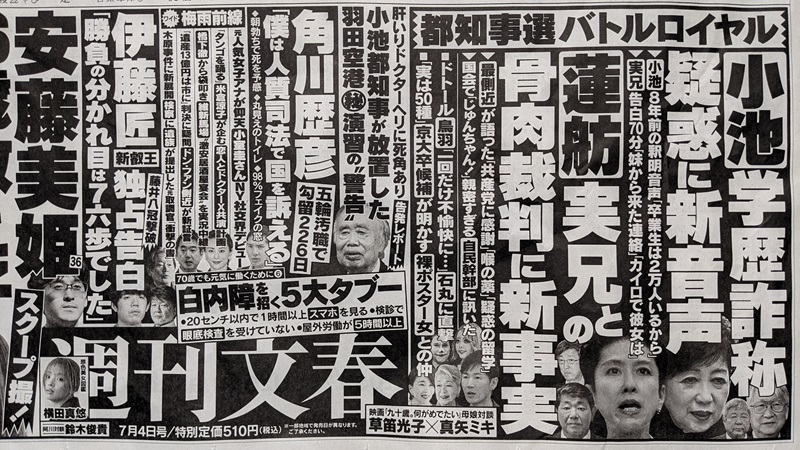 都知事選バトルロイヤル
小池学歴詐称
疑惑に新音声
小池8年前の釈明音声「卒業生は2万人いるから」
実兄告白70分「妹から来た連絡」「カイロで彼女は」
蓮舫実兄との
骨肉裁判に新事実
「最側近」が語った「共産党に感謝」「喉の薬」「疑惑の留学」
国会で「じゅんちゃん!」親密すぎる自民幹部に訊いた
「ドトール鳥羽二回だけ不愉快に…」石丸に直撃
「実は50種」京大卒候補が明かす「裸ポスター女」との仲
肝いりドクターヘリに死角あり 告発レポート
小池都知事が放置した
羽田空港㊙演習の“警告”
角川歴彦
五輪汚職で
勾留226日
「僕は人質司法で国を訴える」
朝勃ちで死を予感
丸見えのトイレ
98%フェイクの窓
梅雨前線
元人気女子アナが仰天
小室眞子さんNY社交界デビュー
「タンゴを踊る」米倉涼子が企む恋人とドクターX共演計画
橋下徹から袋叩き
維新激安居酒屋宴会を実況中継
「遺産13億円は市に」判決に疑問 ドンファン側近が新証言
木原事件に新展開
伊藤匠
新叡王
独占告白
藤井八冠撃破
勝負の分かれ目は7六歩でした
安藤美姫
36
スクープ撮!
70歳でも元気に働くために❻
白内障を招く5大タブー
●20センチ以内で1時間以上スマホを見る ●検診で
眼底検査を受けていない ●屋外労働が5時間以上
週刊文春
横田真悠
阿川対談 鈴木俊貴
7月4日号/特別定価510円(税込)
※一部地域で発売日が異なります。
ご了承ください。
映画「九十歳。何がめでたい」母娘対談
草笛光子×真矢ミキ